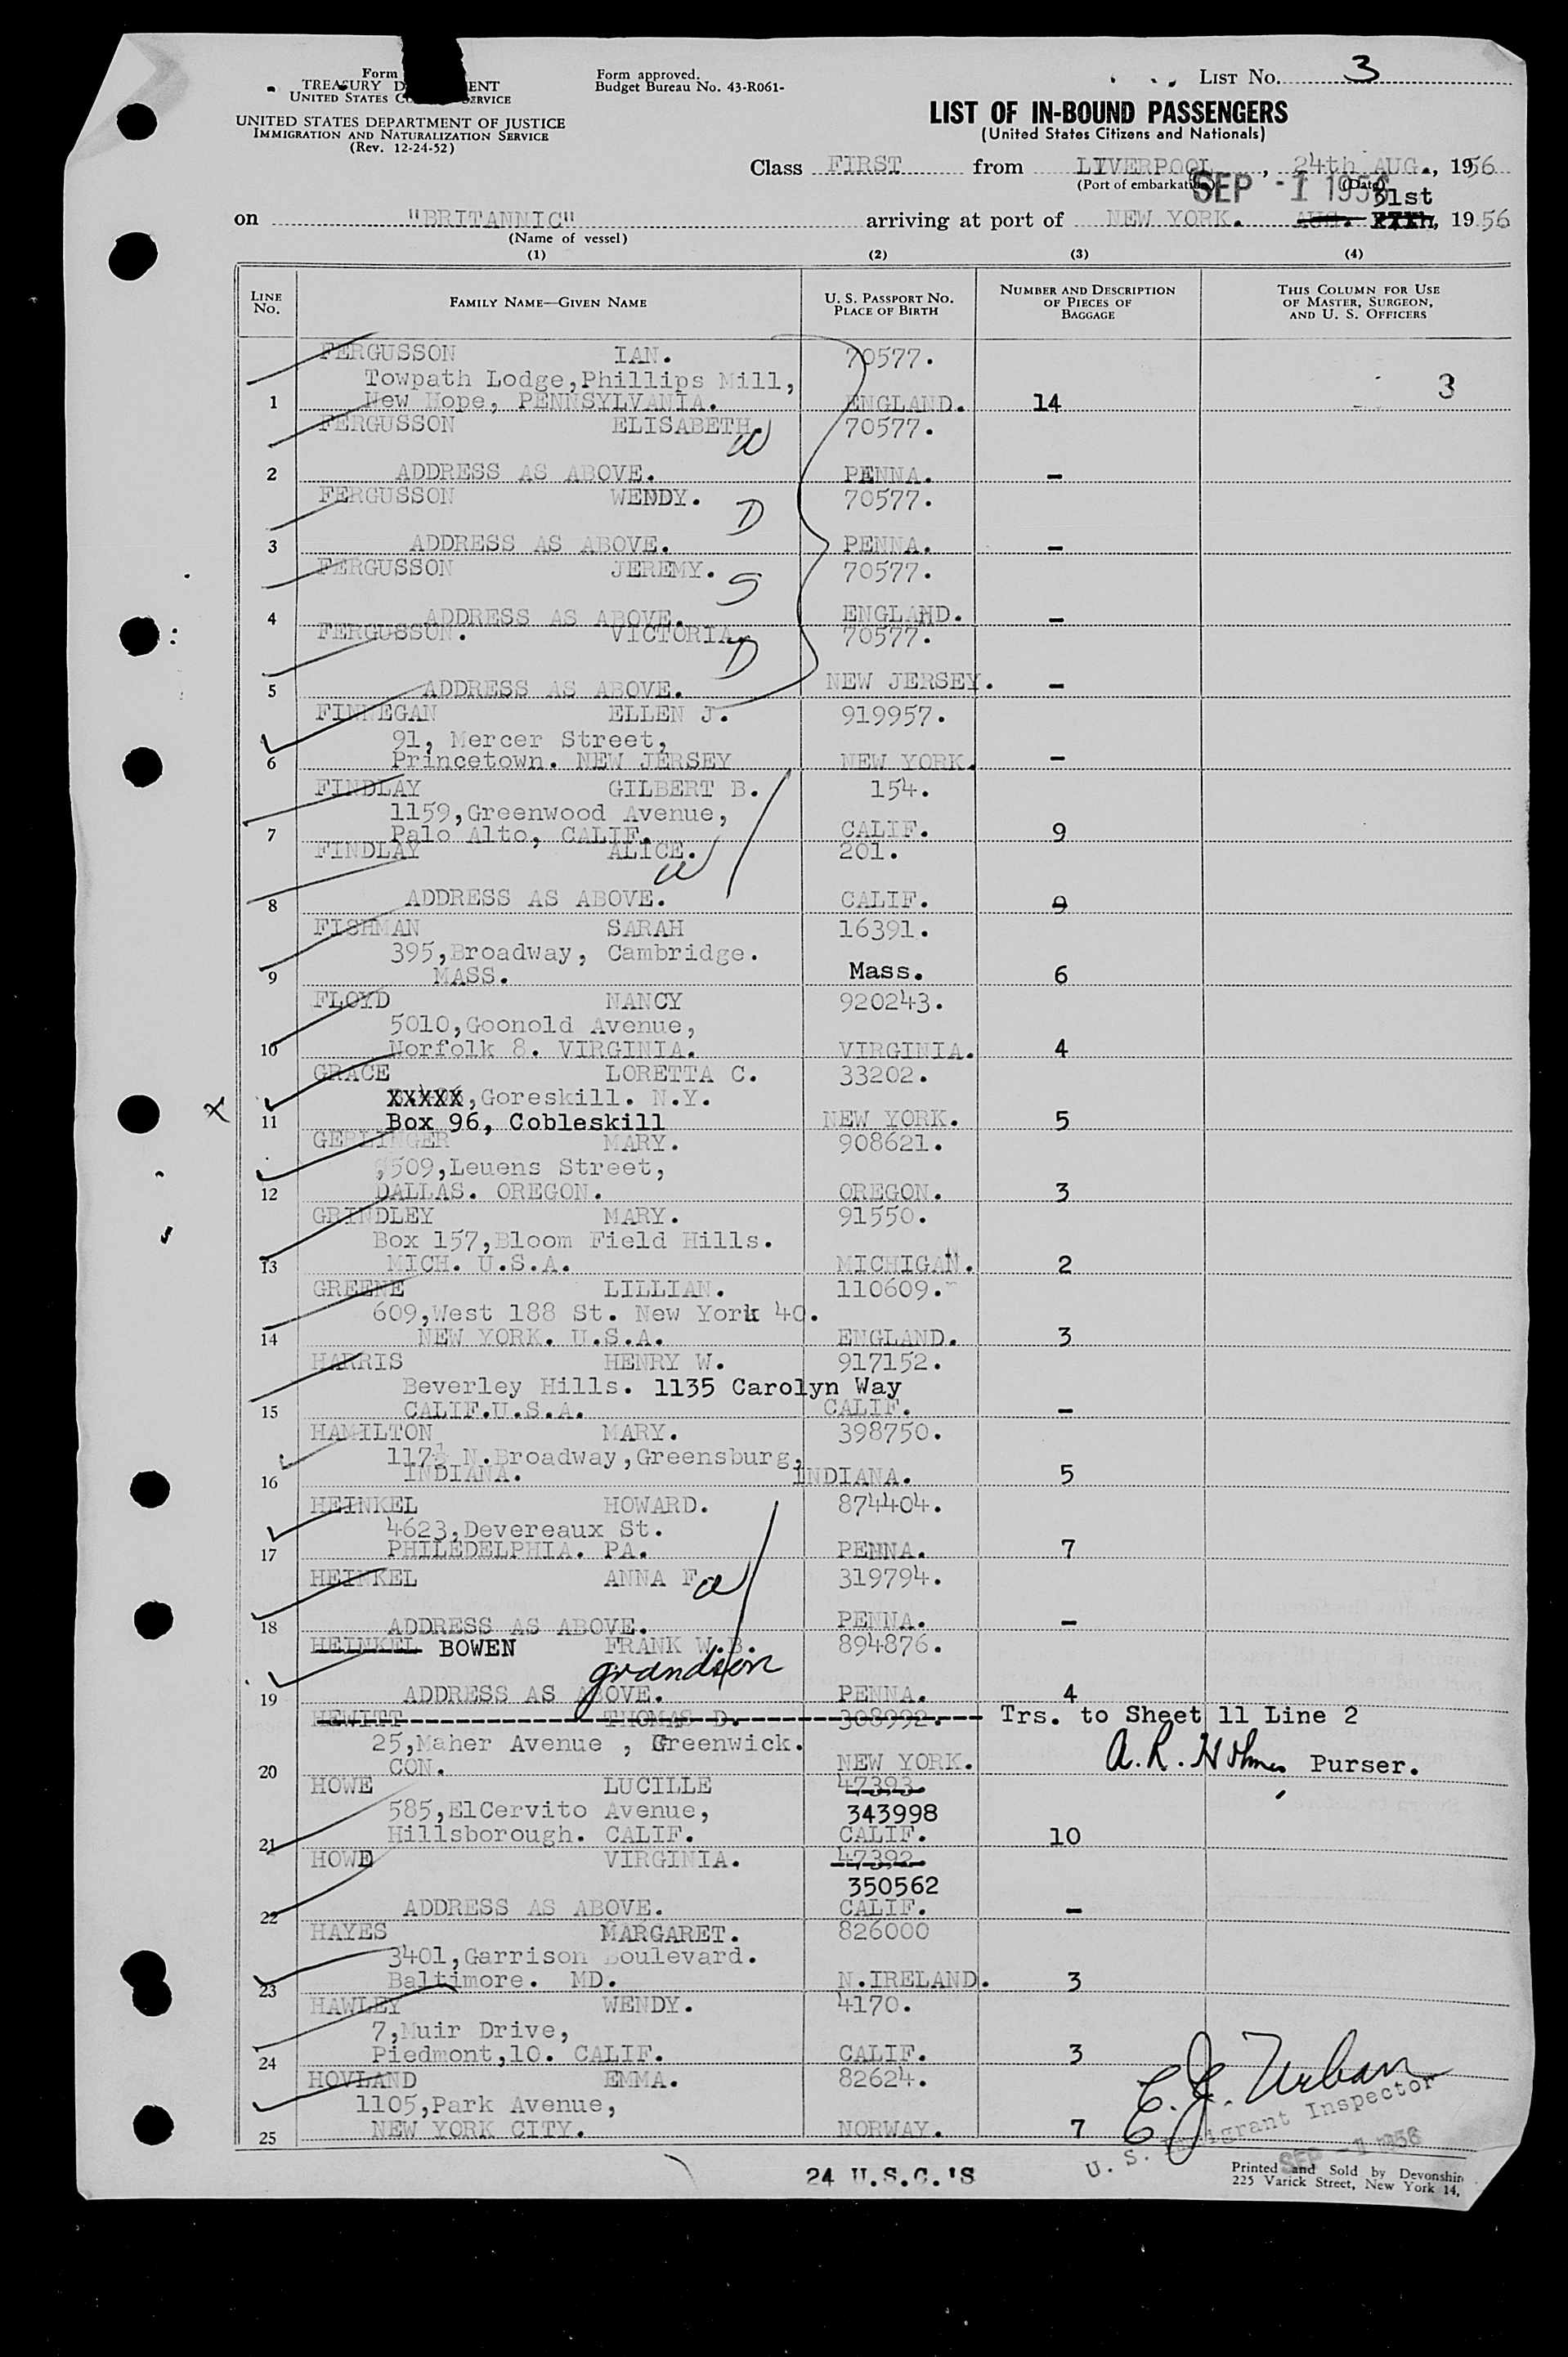 Form
TREASURY D ENT
UNITED STATES C SERVICE
UNITED STATES DEPARTMENT OF JUSTICE
IMMIGRATION AND NATURALIZATION SERVICE
(Rev. 12-24-52)
Form approved.
Budget Bureau No. 43-R061-
LIST No. 3
LIST OF IN-BOUND PASSENGERS
(United States Citizens and Nationals)
Class FIRST from LIVERPOOL, 24th AUG., 1956
(Port of embarkation) (Date)
SEP -1 1956
31st
on "BRITANNIC" arriving at port of NEW YORK. AUG. XXXh, 1956
(Name of vessel)
(1) (2) (3) (4)
LINE No. FAMILY NAME—GIVEN NAME U. S. PASSPORT NO. PLACE OF BIRTH NUMBER AND DESCRIPTION OF PIECES OF BAGGAGE THIS COLUMN FOR USE OF MASTER, SURGEON, AND U. S. OFFICERS
FERGUSSON IAN. 70577.
Towpath Lodge,Phillips Mill,
1 New Hope, PENNSYLVANIA. ENGLAND. 14 3
FERGUSSON ELISABETH. W 70577.
2 ADDRESS AS ABOVE. PENNA. -
FERGUSSON WENDY. D 70577.
3 ADDRESS AS ABOVE. PENNA. -
FERGUSSON JEREMY. S 70577.
4 ADDRESS AS ABOVE. ENGLAND. -
FERGUSSON. VICTORIA. D 70577.
5 ADDRESS AS ABOVE. NEW JERSEY. -
FINNEGAN ELLEN J. 919957.
91, Mercer Street,
6 Princetown. NEW JERSEY NEW YORK. -
FINDLAY GILBERT B. 154.
1159,Greenwood Avenue,
7 Palo Alto, CALIF. CALIF. 9
FINDLAY ALICE. W 201.
8 ADDRESS AS ABOVE. CALIF. 9
FISHMAN SARAH 16391.
395,Broadway, Cambridge.
9 MASS. Mass. 6
FLOYD NANCY 920243.
5010,Goonold Avenue,
10 Norfolk 8. VIRGINIA. VIRGINIA. 4
GRACE LORETTA C. 33202.
XXXXX,Goreskill. N.Y.
X 11 Box 96, Cobleskill NEW YORK. 5
GERLINGER MARY. 908621.
509,Leuens Street,
12 DALLAS. OREGON. OREGON. 3
GRINDLEY MARY. 91550.
Box 157,Bloom Field Hills.
13 MICH. U.S.A. MICHIGAN. 2
GREENE LILLIAN. 110609.
609,West 188 St. New York 40.
14 NEW YORK. U.S.A. ENGLAND. 3
HARRIS HENRY W. 917152.
Beverley Hills. 1135 Carolyn Way
15 CALIF.U.S.A. CALIF. -
HAMILTON MARY. 398750.
117½ N.Broadway,Greensburg,
16 INDIANA. INDIANA. 5
HEINKEL HOWARD. 874404.
4623,Devereaux St.
17 PHILEDELPHIA. PA. PENNA. 7
HEINKEL ANNA F. W 319794.
18 ADDRESS AS ABOVE. PENNA. -
HEINKEL BOWEN FRANK W.B. 894876.
grandson
19 ADDRESS AS ABOVE. PENNA. 4
HEWITT THOMAS D. 308992. Trs. to Sheet 11 Line 2
25,Maher Avenue , Greenwick.
20 CON. NEW YORK. A.R. Holmes Purser.
HOWE LUCILLE 47393.
585,ElCervito Avenue, 343998
21 Hillsborough. CALIF. CALIF. 10
HOWE VIRGINIA. 47392.
350562
22 ADDRESS AS ABOVE. CALIF. -
HAYES MARGARET. 826000
3401,Garrison Boulevard.
23 Baltimore. MD. N.IRELAND. 3
HAWLEY WENDY. 4170.
7,Muir Drive,
24 Piedmont,10. CALIF. CALIF. 3
HOVLAND EMMA. 82624.
1105,Park Avenue,
25 NEW YORK CITY. NORWAY. 7
E.J. Urban
U. S. Immigrant Inspector
SEP -1 1956
24 U.S.C.'S
Printed and Sold by Devonshir
225 Varick Street, New York 14,